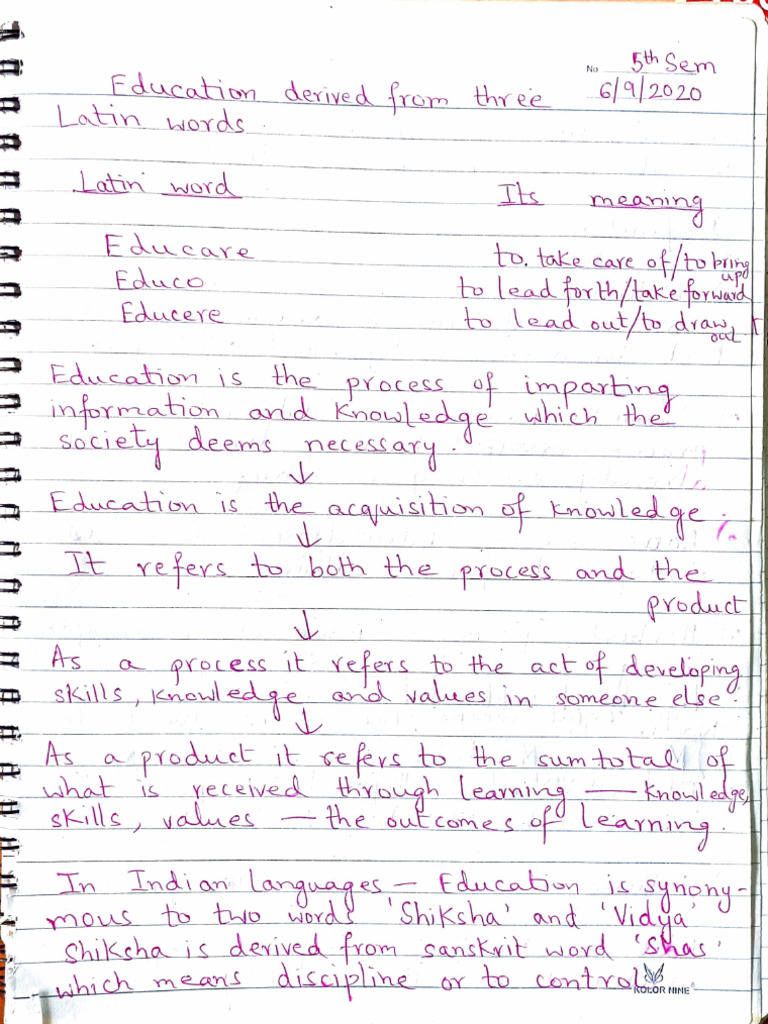 No 5th Sem
6/9/2020
Education derived from three
Latin words.
Latin word Its meaning
Educare to. take care of/to bring up
Educo to lead forth/take forward
Educere to lead out/to draw out
Education is the process of imparting
information and knowledge which the
society deems necessary.
↓
Education is the acquisition of knowledge.
↓
It refers to both the process and the
product
↓
As a process it refers to the act of developing
skills, knowledge and values in someone else.
↓
As a product it refers to the sumtotal of
what is received through learning — knowledge,
skills, values — the outcomes of learning.
In Indian languages — Education is synony-
mous to two words 'Shiksha' and 'Vidya'
Shiksha is derived from sanskrit word 'shas'
which means discipline or to control
KOLOR NINE